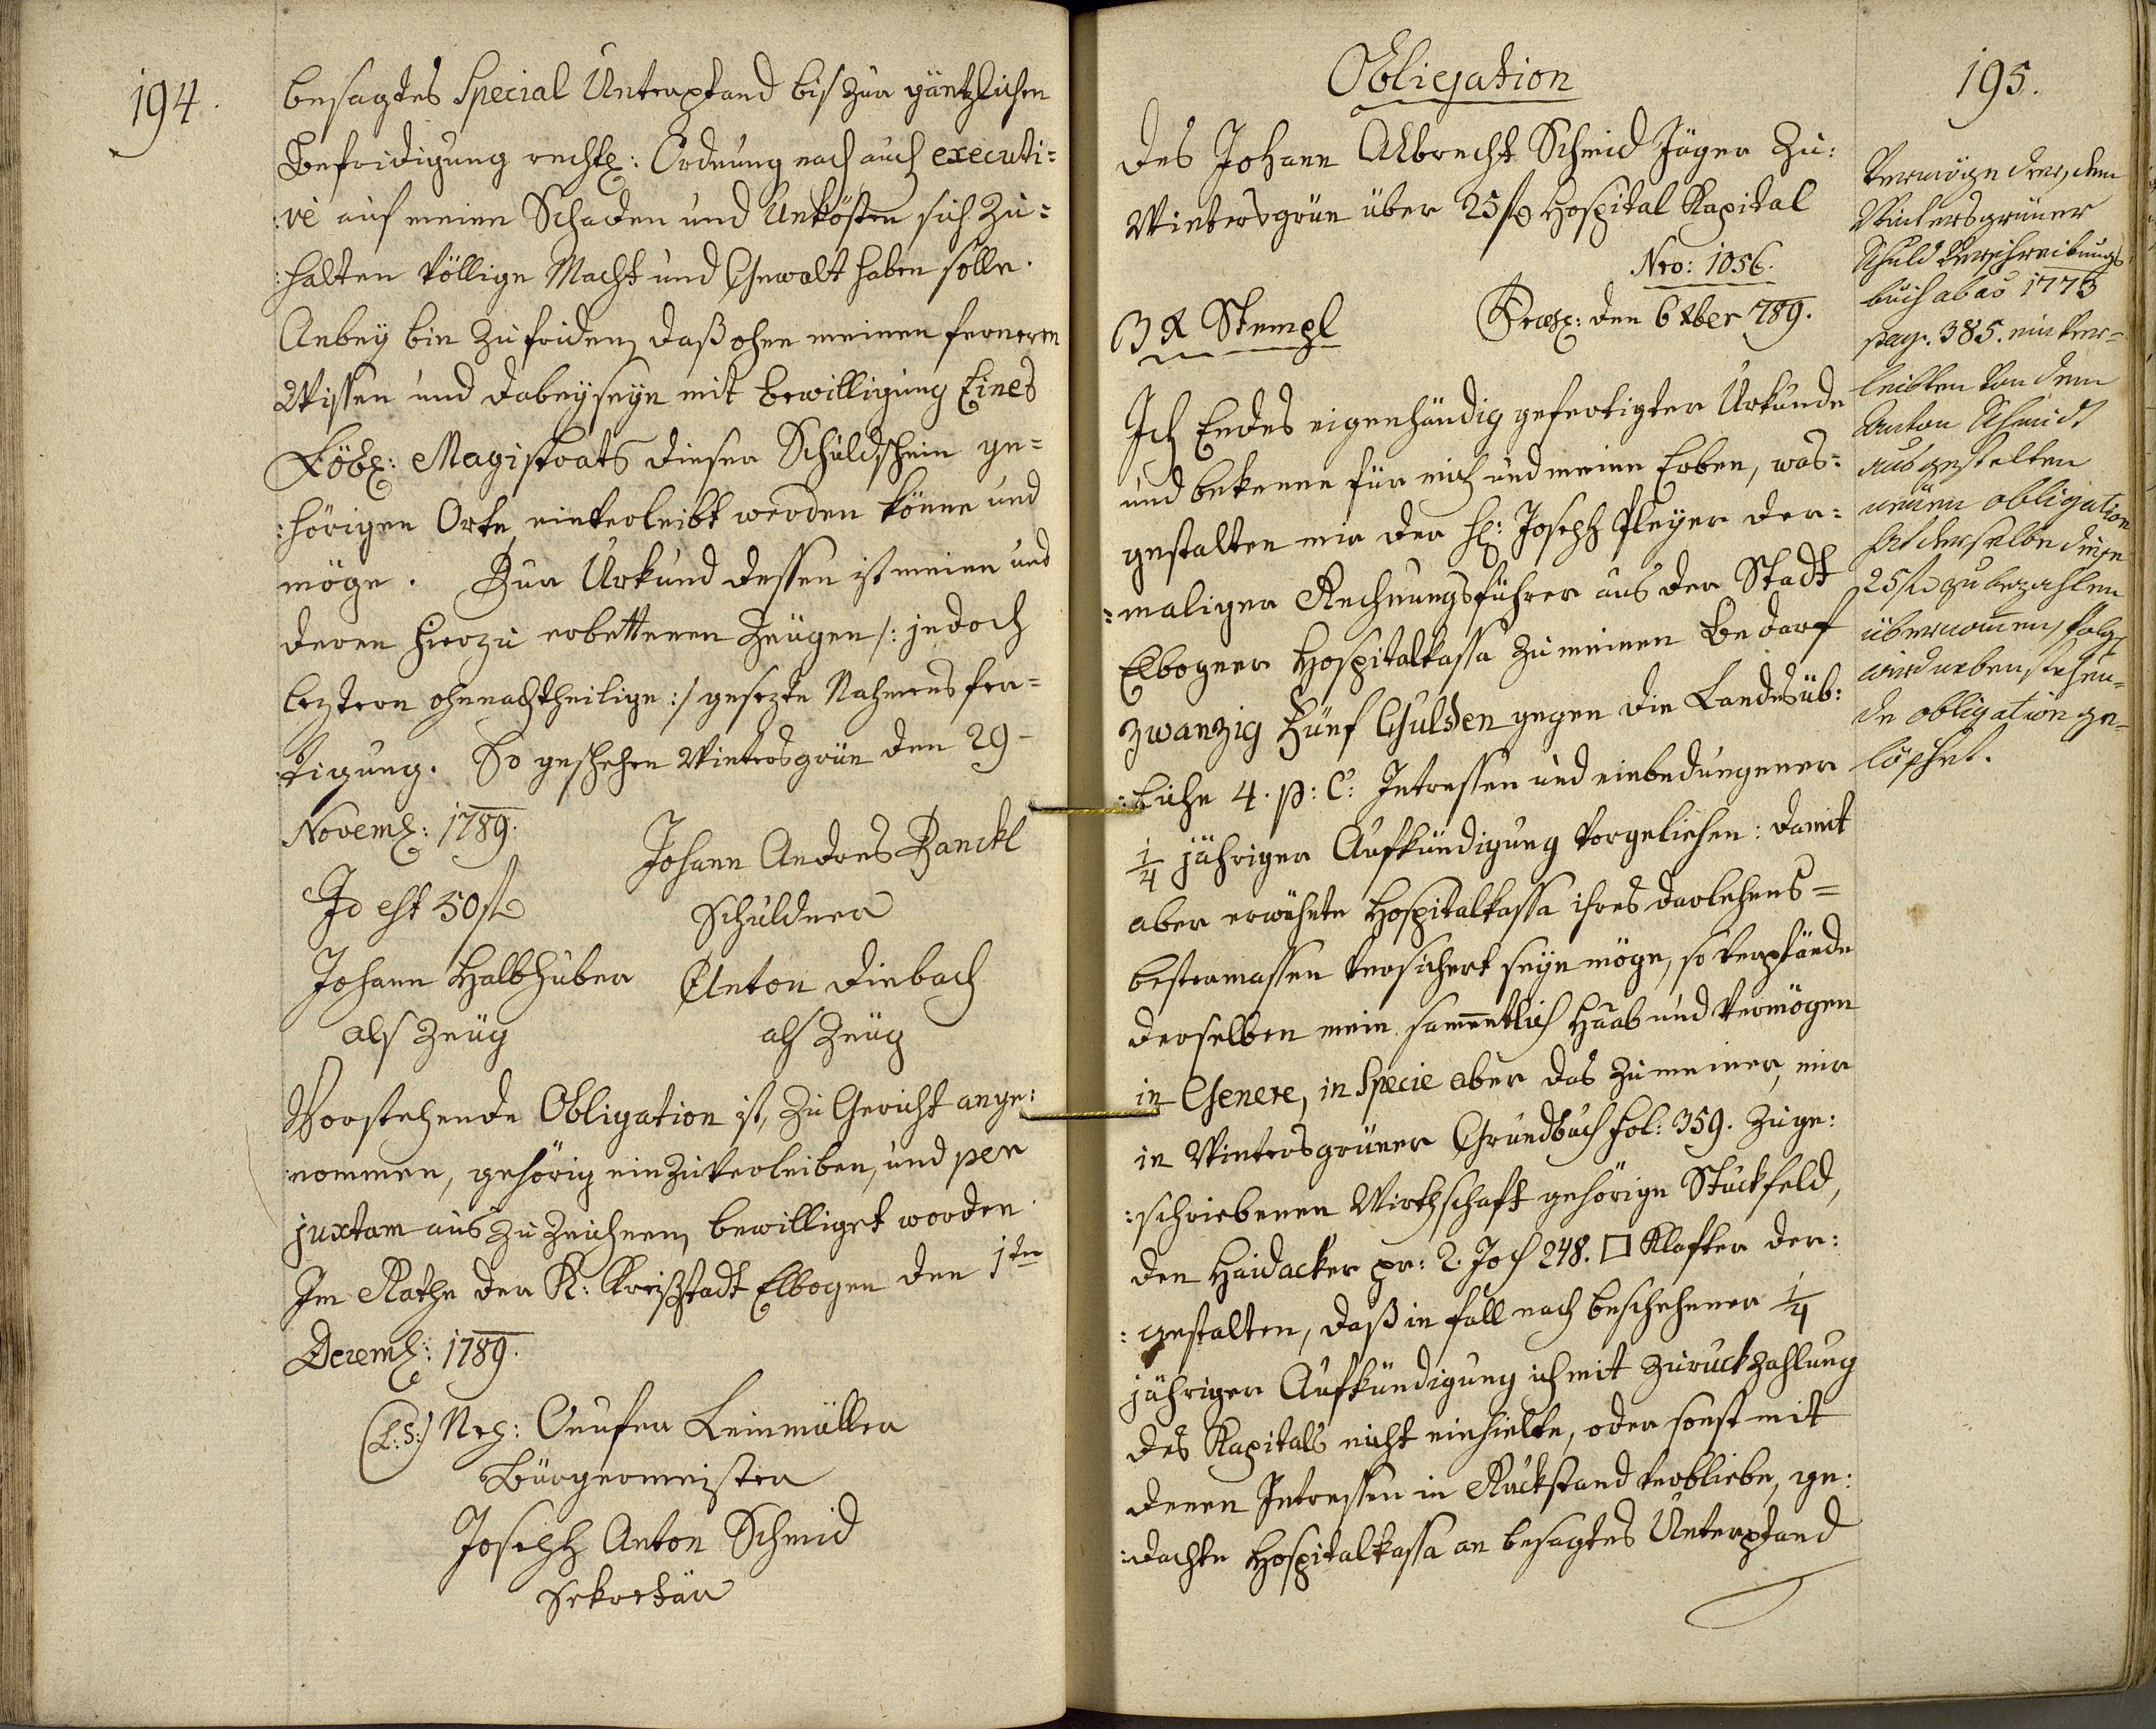 194.
besagtes Special Unterpfand bis zur gäntzlichen
Befridigung rechtl: Ordnung nach auch executi=
:ve auf meine Schaden und Unkösten sich zu=
:halten völlige Macht und Gewalt haben solle.
Anbey bin zufriden, daß ohne meinen ferneren
Wissen und dabeyseyn mit Bewilligung Eines
Löbl: Magistrats dieser Schuldschein ge=
:hörigen Orts einverleibt werden könne und
möge. Zur Urkund dessen ist meine und
deren hierzu erbettenen Zeugen /: jedoch
leztern ohnnachtheilige :/ gesezte Nahmensfer=
:tigung. So geschehen Wintersgrün den 29
Novemb: 1789.
Johann Andres Zanckl
Id est 50 f
Schuldner
Johann Halbhuber Anton Diebach
als Zeug als Zeug
Vorstehende Obligation ist, zu Gericht ange:
:nommen, gehörig einzuverleiben, und per
juxtam aus zu zeichnen, bewilliget worden.
Im Rathe der K: Kreißstadt Elbogen den 1ten
Decemb: 1789.
(L:S:) Leinmüller
Bürgermeister
Joseph Anton Schmid
Sekretär
195.
Obligation
des Johann Albrecht Schmid Jäger zu:
Wintersgrün über 25 f Hospital Kapital
Nro: 1056.
3 x Stempl
Praes: den 6 xber 789.
Ich Endes eigenhändig gefertigter Urkunde
und bekenne für mich und meine Erben, was:
gestalten mir der H: Joseph Pleyer der=
:maliger Rechnungsführer aus der Stadt
Elbogner Hospitalkassa zu meinen Bedarf
zwanzig Fünf Gulden gegen die Landesüb:
:liche 4. p: C: Intressen und einbedungener
1/4 jähriger Aufkündigung vorgeliehen: damit
aber erwähnte Hospitalkassa ihres darlehens=
bestermassen versichert seyn möge, so verpfände
derselben mein sammentlich Haab und Vermögen
in Genere, in Specie aber das zu meiner, mir
in Wintersgrüner Grundbuch fol: 359. zuge:
:schriebenen Wirthschaft gehörige Stückfeld,
den Haidacker pr: 2. Joch 248. □ Klafter der:
:gestalten, daß in fall nach beschehener 1/4
jähriger Aufkündigung ich mit zuruckzahlung
des Kapitals nicht einhielte, oder sonst mit
denen Intressen in Ruckstand verbliebe, ge:
:dachte Hospitalkassa an besagtes Unterpfand
Vermöge der, dem
Wintersgrüner
Schuld Verschreibungs
buch ab ao 1773
pag. 385. einver=
leibten von dem
Anton Schmidt
ausgestelten
neuen obligation
hat derselbe diese
25 f zu bezahlen
übernommen, folgl.
wird nebenstehen=
de obligation ge=
löschet.